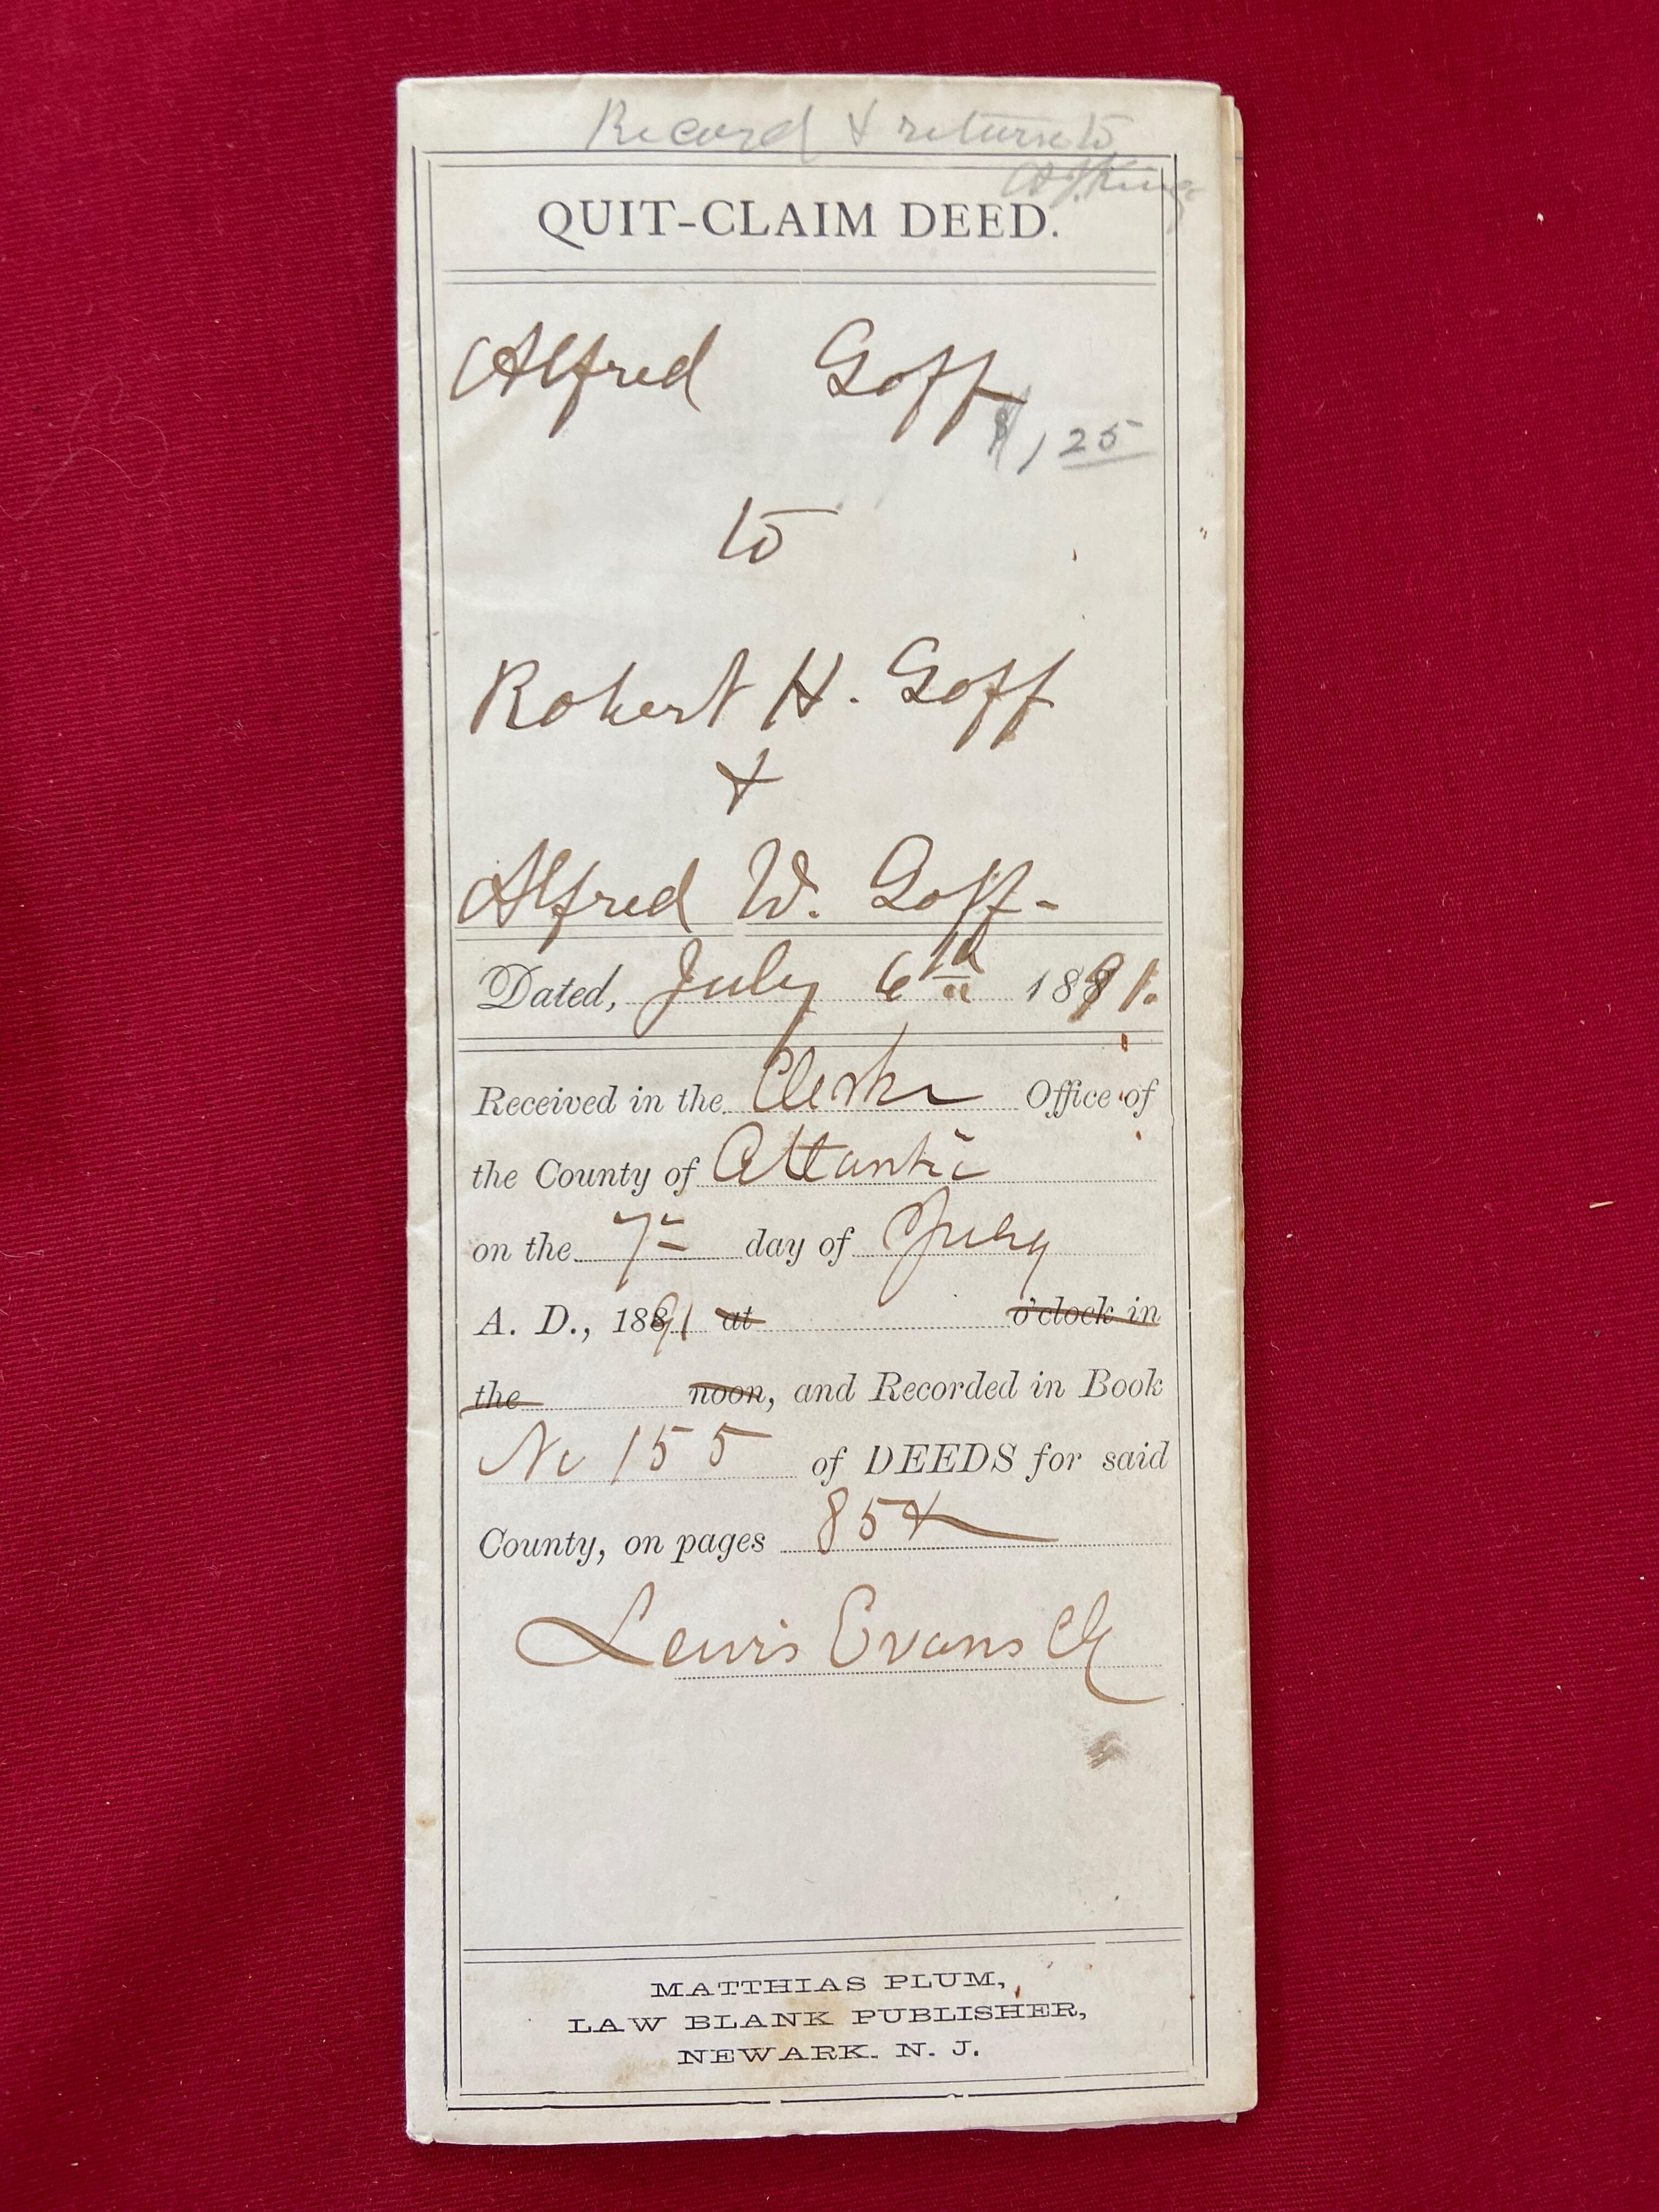 Record & return to
QUIT-CLAIM DEED.
Alfred Goff
$1,25
to
Robert H. Goff
&
Alfred W. Goff-
Dated, July 6th 1891.
Received in the Clerks Office of
the County of Atlantic
on the 7= day of July
A. D., 1891 at o'clock in
the noon, and Recorded in Book
No 155 of DEEDS for said
County, on pages 85&
Lewis Evans Clk
MATTHIAS PLUM,
LAW BLANK PUBLISHER,
NEWARK. N. J.